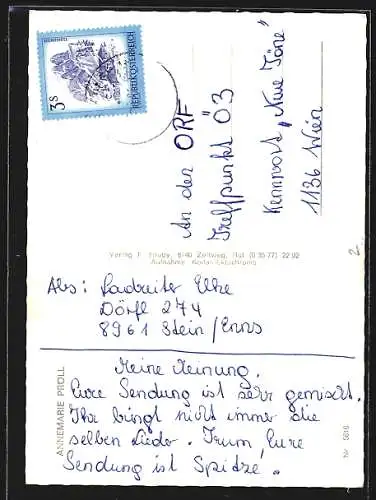 3 S
REPUBLIK ÖSTERREICH
An den ORF
Treffpunkt Ö3
Kennwort „Neue Töne"
1136 Wien
Verlag F. 8740 Zeltweg, Ruf (0 35 77) 22 02
Abs: Landreiter Elke
Dörfl 274
8961 Stein/Enns
ANNEMARIE PRÖLL
Meine Meinung.
Eure Sendung ist sehr gemischt.
Ihr bringt nicht immer die
selben Lieder. Trum, Eure
Sendung ist Spitze.
Nr.
2